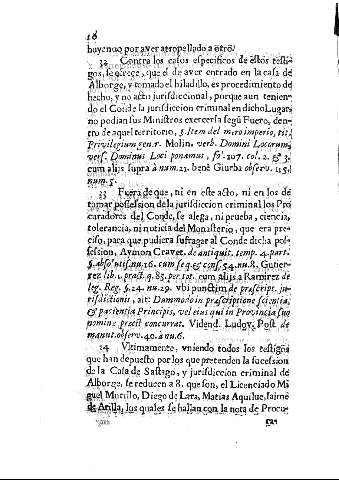 16
huyendo por aver atropellado a otro.
32 Contra los casos especificos de estos testi-
gos, se ofrece, que el de aver entrado en la casa de
Alborge, y tomado el hiladillo, es procedimiento de
hecho, y no acto jurisdiccional, porque aun tenien-
do el Conde la jurisdiccion criminal en dicho Lugar,
no podian sus Ministros exercerla segũ Fuero, den-
tro de aquel territorio, §. Item del mero imperio, tit.
Privilegium gen. r. Molin. verb. Domini Locorum,
vers. Dominus Loci ponamus, fol. 107. col. 2. & 3.
cum alijs supra à num. 21. benè Giurba observ. 115.
num. 5.
33 Fuera de que, ni en este acto, ni en los de
tomar possession de la jurisdiccion criminal los Pro
curadores del Conde, se alega, ni prueba, ciencia,
tolerancia, ni noticia del Monasterio, que era pre-
ciso, para que pudiera sufragar al Conde dicha pos-
session, Aymon Cravet. de antiquit. temp. 4. part.
§. absolutis. nu. 26. cum seq. & cons. 54. nu. 8. Gutier-
rez lib. 1. pract. q. 83. per tot. cum alijs à Ramirez de
leg. Reg. §. 24. nu. 29. vbi punctim de præscript. ju-
risdictionis, ait: Dummodo in præscriptione scientia,
& patientia Principis, vel eius qui in Provincia suo
nomine præest concurrat. Vidend. Ludov. Post. de
manut. observ. 40. à nu. 6.
34 Vltimamente, vniendo todos los testigos
que han depuesto por los que pretenden la sucession
de la Casa de Sastago, y jurisdiccion criminal de
Alborge, se reducen a 8. que son, el Licenciado Mi
guel Murillo, Diego de Lara, Matias Aquilue, Iaime
de Arilla, los quales se hallan con la nota de Procu-